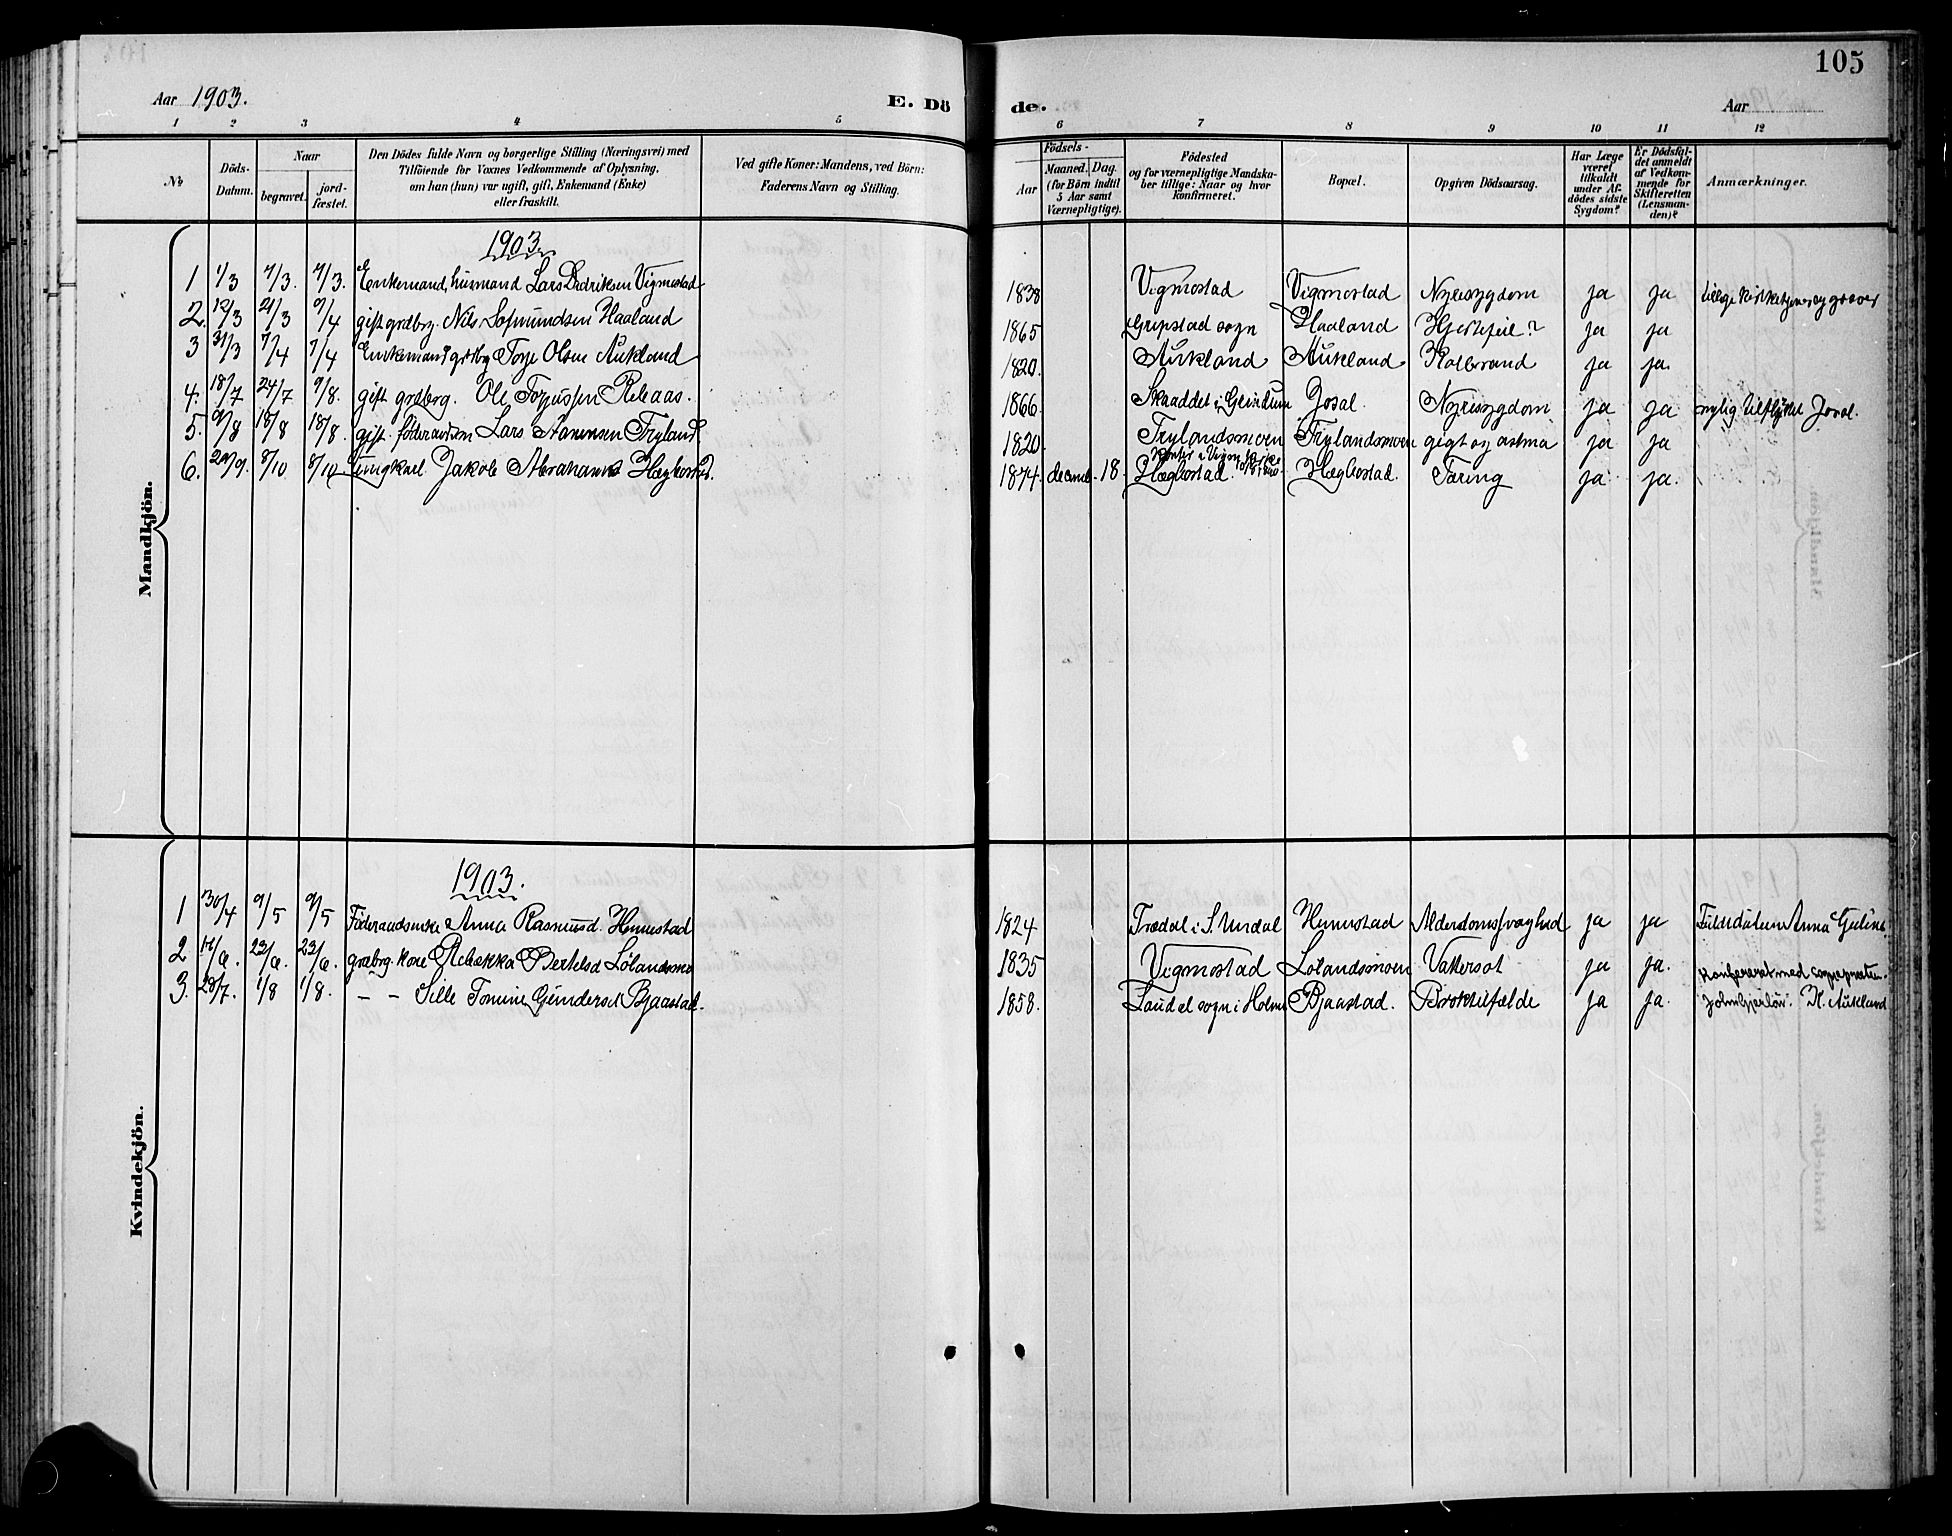 105
Aar 1903.
E. Dö de.
Aar
1 2 3 4 5 6 7 8 9 10 11 12
No
Döds-Datum.
Naar
begravet.
jord-fæstet.
Den Dödes fulde Navn og borgerlige Stilling (Næringsvei) med
Tilföiende for Voxnes Vedkommende af Oplysning,
om han (hun) var ugift, gift, Enkemand (Enke)
eller fraskilt.
Ved gifte Koner: Mandens, ved Börn:
Faderens Navn og Stilling.
Födsels-
Aar
Maaned. Dag.
(for Börn indtil
5 Aar samt
Værnepligtige).
Födested
og for værnepligtige Mandska-
ber tillige: Naar og hvor
konfirmeret.
Bopæl.
Opgiven Dödsaarsag.
Har Læge
været
tilkaldt
under Af-
dödes sidste
Sygdom?
Er Dödsfal-
det anmeldt
af Vedkom-
mende for
Skifteretten
(Lensman-
den)?
Anmærkninger.
Mandkjön.
1903.
1 1/3 7/3. 7/3. Enkemand, husmand Lars Didriksen Vigmostad 1838 Vigmostad Vigmostad Nyresygdom ja ja tillige kirketjener og graver
2. 12/3 21/3 9/4 gift grdbrg. Nils Sofmundsen Haaland 1865 Gripstad sogn Haaland Hjertefeil? ja ja
3 31/3 7/4 7/4 Enkemand grdbrg Torje Olsen Aukland 1820. Aukland Aukland Kolbrand ja ja.
4. 18/7 24/7 9/8. gift grdbrg. Ole Torjussen Releaas. 1866. Skaaddet i Grindum Josal. Nyresygdom ja ja nylig tilflyttet Josal.
5. 9/8 18/8 18/8. gift. föderaadsm Lars Aanensen Tryland 1820. Trylandsmoen Trylandsmoen gigt og astma ja ja
6. 29/9. 8/10 8/10 Ungkarl Jakob Abrahams Hægbostad. 1874. decemb. 18. Hægbostad. Hægbostad. Tæring ja ja.
Kvindekjön.
1903.
1 30/4 9/5 9/5 Föderaadsenke Anna Rasmusd. Hennestad 1824 Trædal i S. Undal Hennestad Alderdomssvaghed ja ja
2 17/6. 23/6. 23/6. grdbrg. kone Rebekka Bertelsd Lölandsmo 1835 Vigmostad Lölandsmoen Vattersot ja ja.
3. 28/7. 1/8 1/8. – – Sille Tomine Gundersd. Bjaastad. 1858. Laudal sogn i Holme Bjaastad. Broktilfælde ja ja. H. Aukland